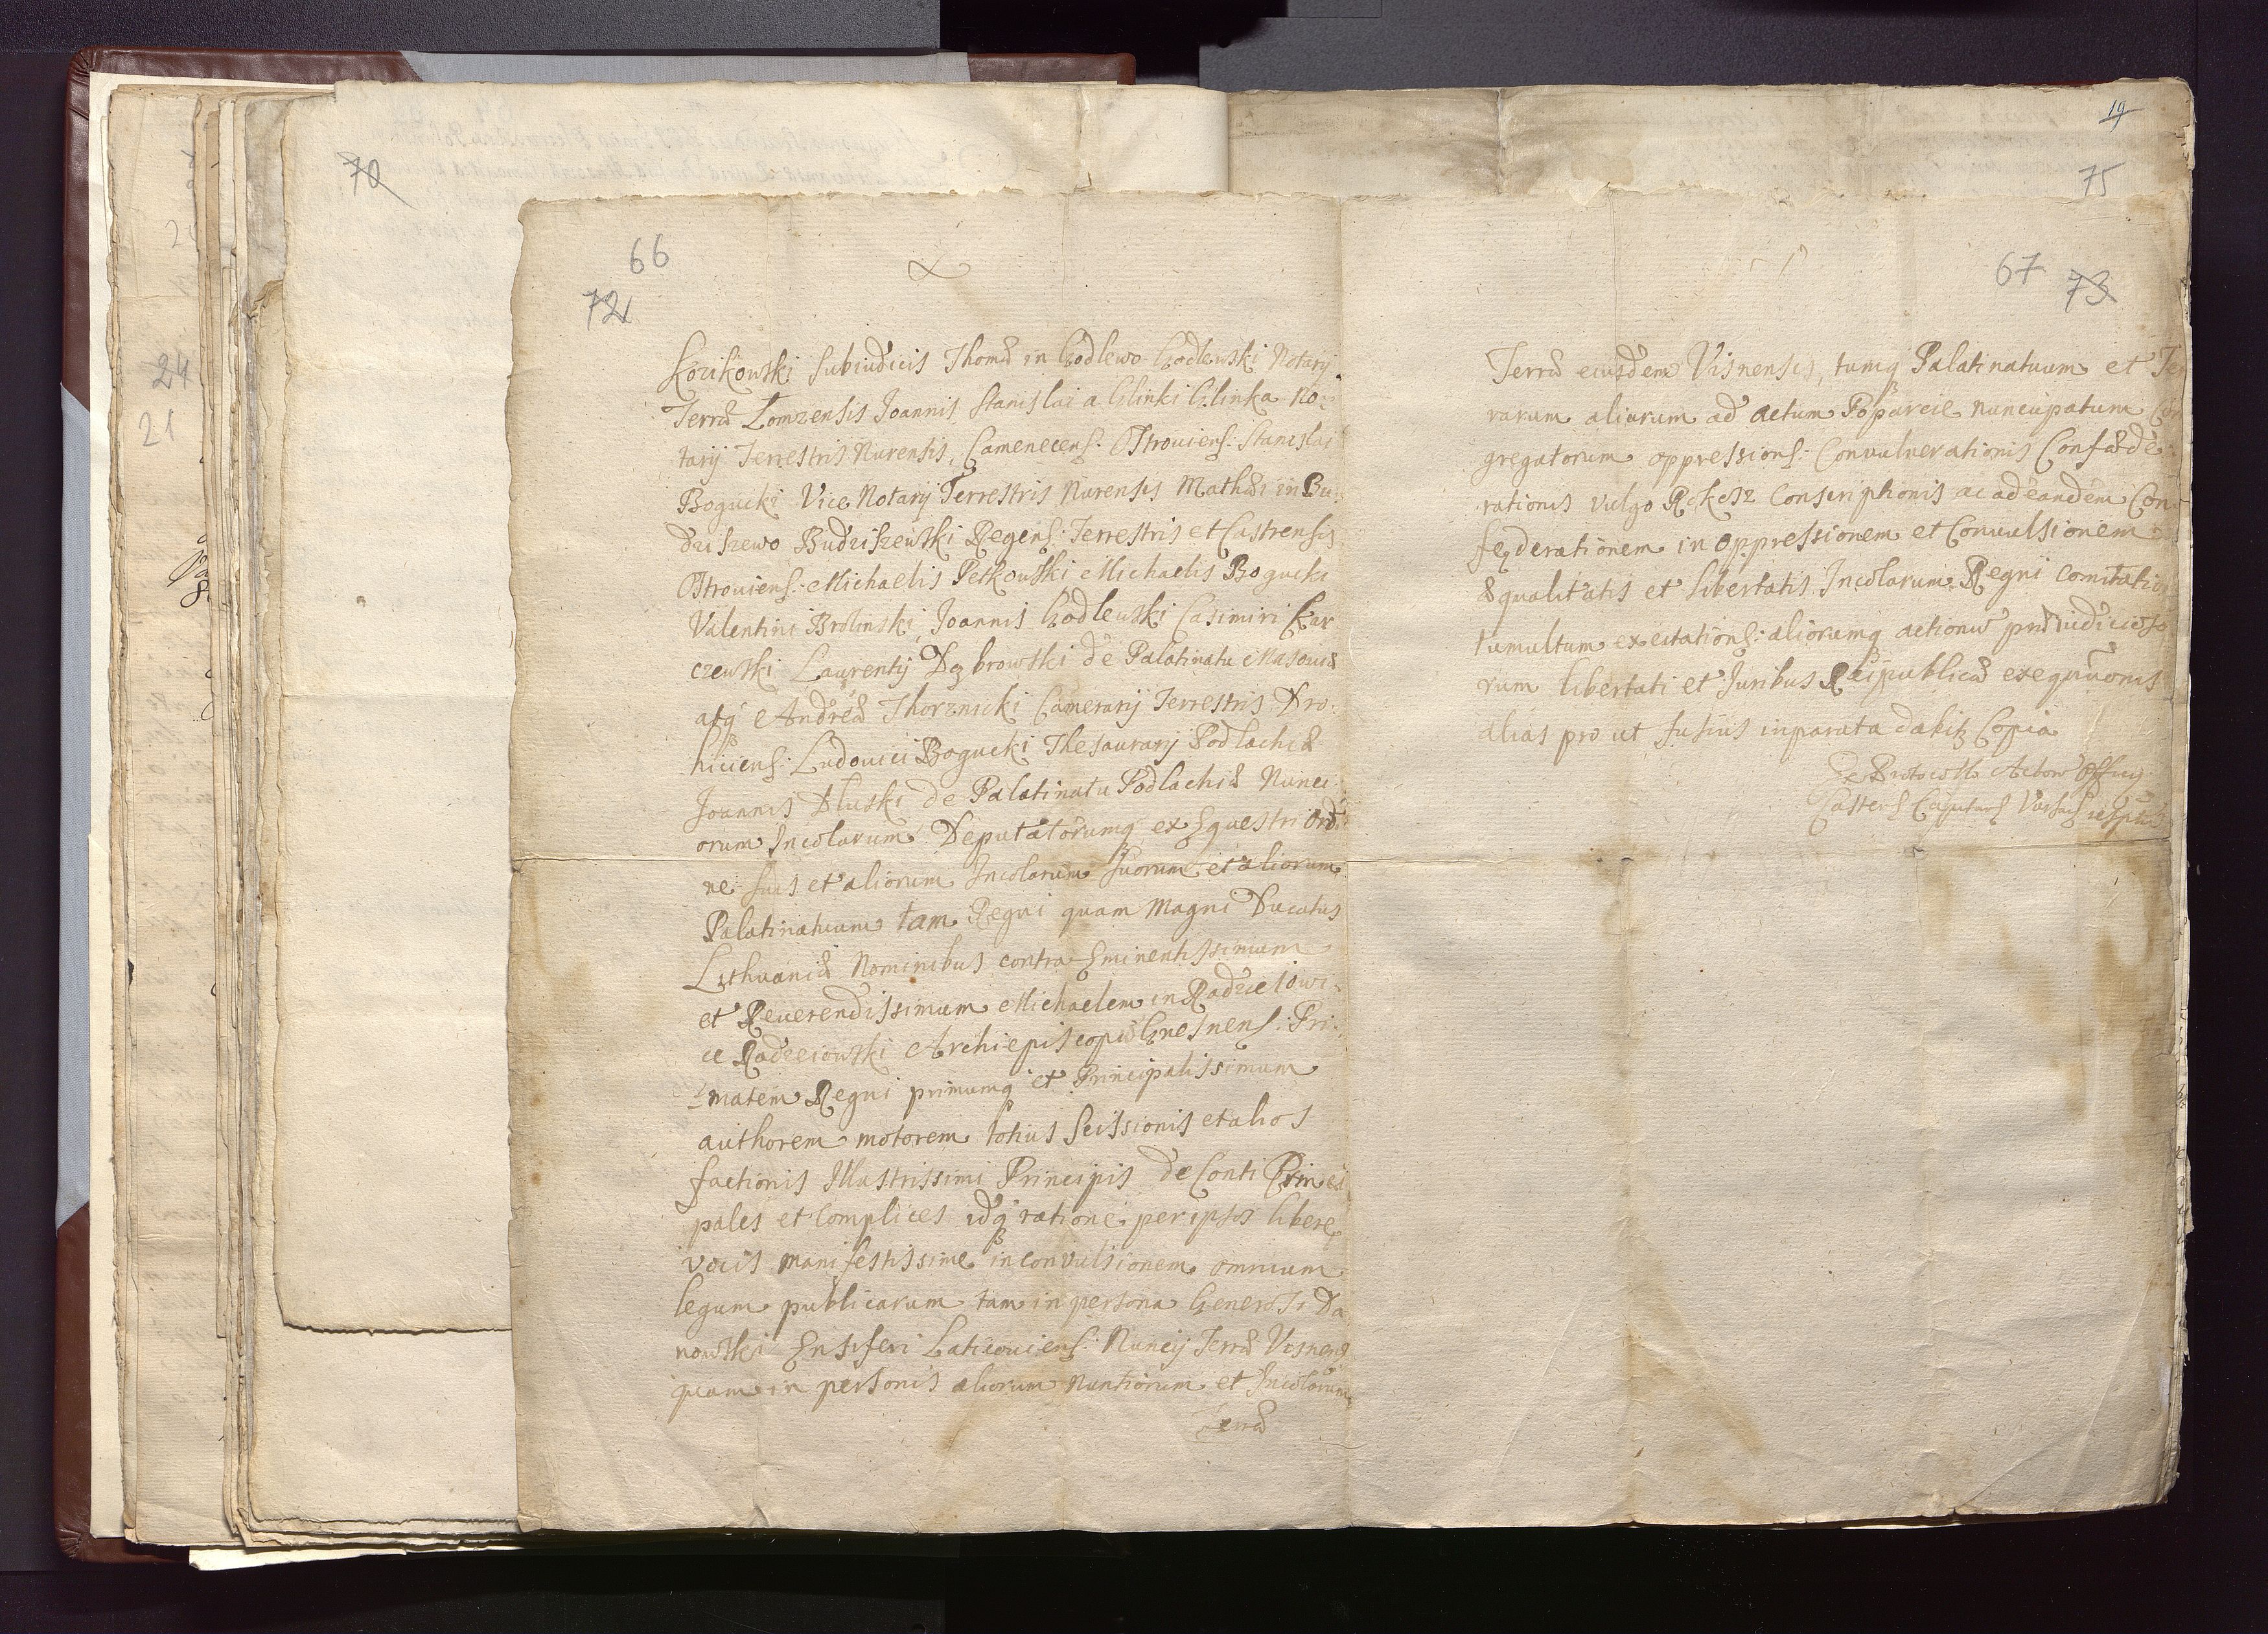 70
66
72
Kozikowski Subiudicis Thomæ in Godlewo Godlewski Notarij
Terræ Lomzensis Joannis Stanislai a Glinki Glinka No:
tarij Terrestris Nurensis, Camenecens: Ostrouiens: Stanislai
Bogucki Vice Notarij Terrestris Nurensis Mathæi in Bu:
dziszewo Budziszewski Regens: Terrestris et Castrensis
Ostrouiens: Michaelis Petkowski Michaelis Bogucki
Valentini Brolinski, Joannis Godlewski Casimiri Kar
czewski Laurentij Dąbrowski de Palatinatu Masouiæ
atq Andreæ Thorznicki Camerarij Terrestris Dro:
hiciens: Ludouici Bogucki Thesaurarij Podlachiæ
Joannis Dluski de Palatinatu Podlachiæ Nunci
orum Incolarum Deputatorumq ex Equestri Ordi
ne suis et aliorum Incolarum suorum et aliorum
Palatinatuum tam Regni quam Magni Ducatus
Lithuaniæ Nominibus contra Eminentissimum
et Reuerendissimum Michaelem in Radzieiowi:
ce Radzeiowski Archiepiscopū Gnesnens: Pri:
matem Regni primumq et Principalissimum
authorem motorem totius Scissionis et alios
factionis Illustrissimi Principis de Conti Princi
pales et Complices idq ratione per ipsos liberę
vocis manifestissime in convulsionem omnium
legum publicarum tam in persona Generosi Da
nowski Ensiferi Laticouiens: Nuncij Terræ Visnens
quam in personis aliorum Nuntiorum et Incolarum
Terræ
19
75
67
73
Terræ eiusdem Visnensis, tumq Palatinatuum et Ter
rarum aliarum ad actum Poparcie nuncupatum Con
gregatorum oppressions: Convulnerationis Confæde
rationis vulgo Rokosz Conscriptionis ac ad eandem Con
fęderationem in oppressionem et Convulsionem
æqualitatis et libertatis Incolarum Regni Comitatio
tumultum excitations: aliorumq actionū præiudicioso
rum libertati et Juribus Reipublicæ exequutionis
alias pro ut fusius in parata dabitᶻ Copia
Ex Protocoll Actorū Officij
Castrs Capturs Varsas